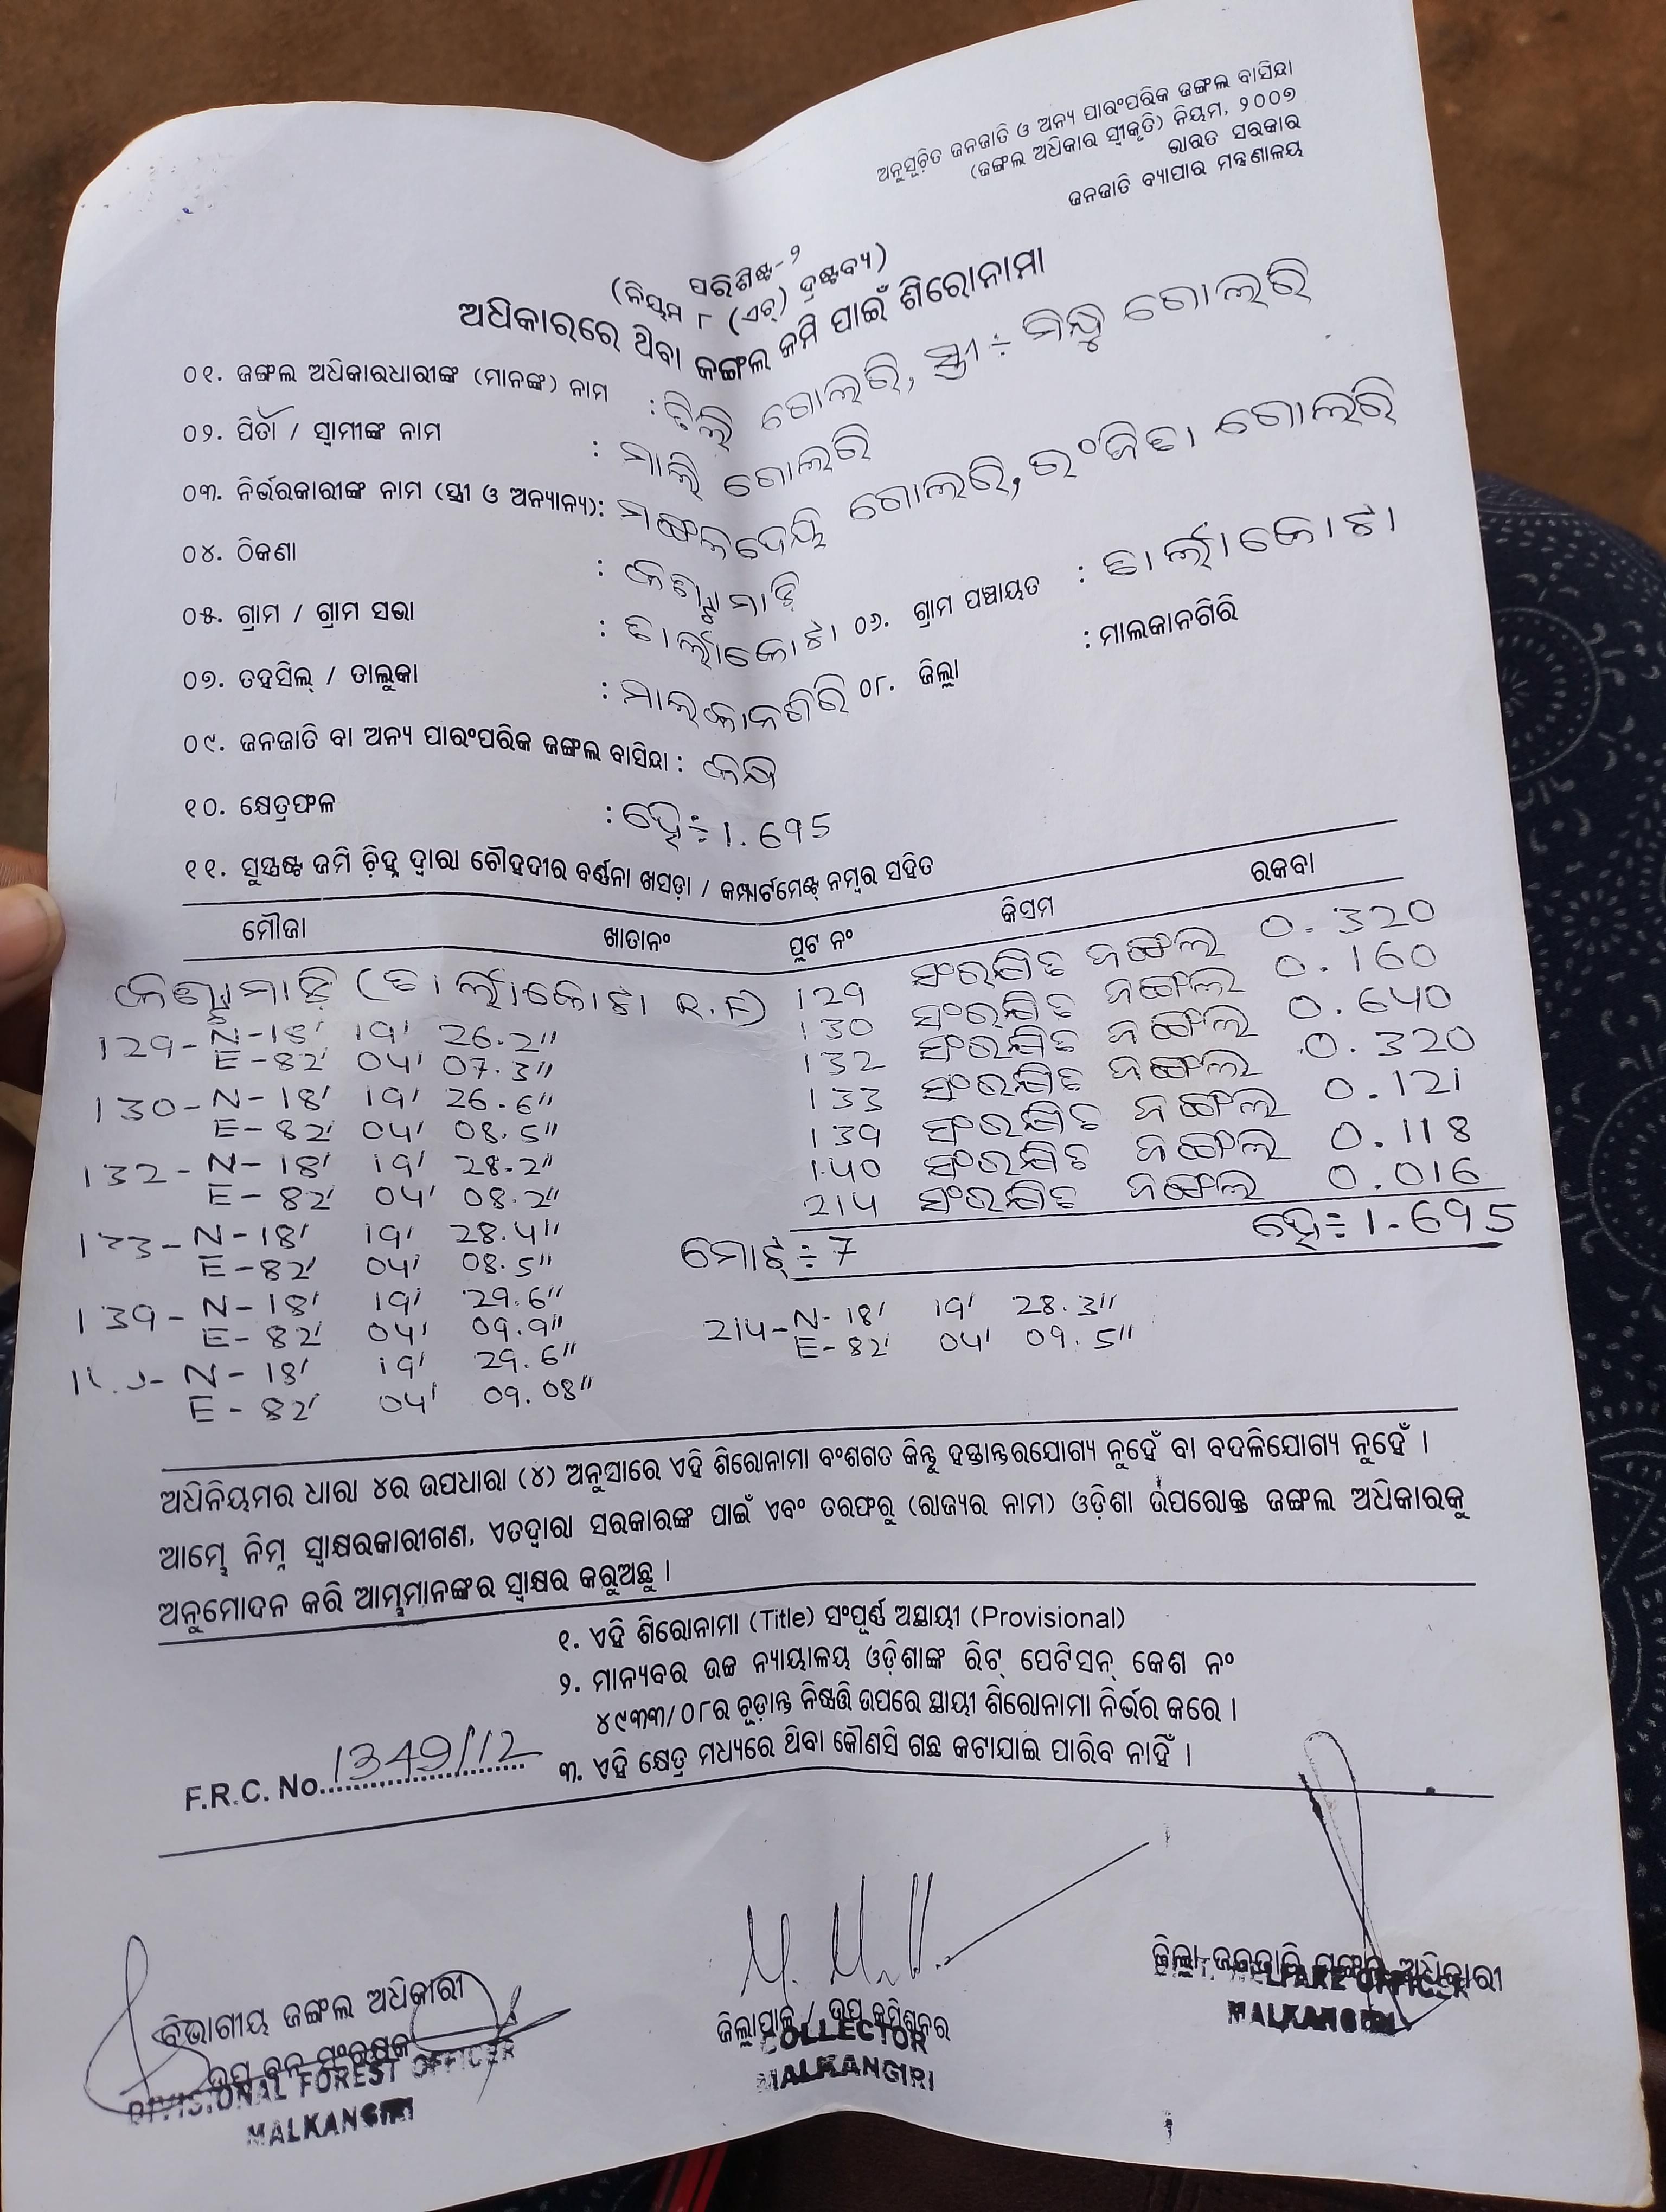 ଅନୁସୂଚିତ ଜନଜାତି ଓ ଅନ୍ୟ ପାରଂପରିକ ଜଙ୍ଗଲ ବାସିନ୍ଦା
(ଜଙ୍ଗଲ ଅଧିକାର ସ୍ୱୀକୃତି) ନିୟମ, ୨୦୦୭
ଭାରତ ସରକାର
ଜନଜାତି ବ୍ୟାପାର ମନ୍ତ୍ରଣାଳୟ
ପରିଶିଷ୍ଟ-୨
(ନିୟମ ୮ (ଏଚ୍) ଦ୍ରଷ୍ଟବ୍ୟ)
ଅଧିକାରରେ ଥିବା ଜଙ୍ଗଲ ଜମି ପାଇଁ ଶିରୋନାମା
୦୧. ଜଙ୍ଗଲ ଅଧିକାରଧାରୀଙ୍କ (ମାନଙ୍କ) ନାମ : ଗୋଲରି, ସ୍ତ୍ରୀ ÷ ଗୋଲରି
୦୨. ପିତା / ସ୍ୱାମୀଙ୍କ ନାମ : ମାଲି ଗୋଲରି
୦୩. ନିର୍ଭରକାରୀଙ୍କ ନାମ (ସ୍ତ୍ରୀ ଓ ଅନ୍ୟାନ୍ୟ) : ମଙ୍ଗଲଦେୟି ଗୋଲରି, ରଂଜିତା ଗୋଲରି
୦୪. ଠିକଣା :
୦୫. ଗ୍ରାମ / ଗ୍ରାମ ସଭା : ତାର୍ଲାକୋଟା ୦୬. ଗ୍ରାମ ପଞ୍ଚାୟତ : ତାର୍ଲାକୋଟା
୦୭. ତହସିଲ୍ / ତାଲୁକା : ମାଲକାନଗିରି ୦୮. ଜିଲ୍ଲା : ମାଲକାନଗିରି
୦୯. ଜନଜାତି ବା ଅନ୍ୟ ପାରଂପରିକ ଜଙ୍ଗଲ ବାସିନ୍ଦା : କନ୍ଧ
୧୦. କ୍ଷେତ୍ରଫଳ : ହେ÷ 1.695
୧୧. ସୁସ୍ପଷ୍ଟ ଜମି ଚିହ୍ନ ଦ୍ୱାରା ଚୌହଦୀର ବର୍ଣ୍ଣନା ଖସଡ଼ା / କମ୍ପାର୍ଟମେଣ୍ଟ ନମ୍ବର ସହିତ
ମୌଜା ଖାତାନଂ ପ୍ଲଟ ନଂ କିସମ ରକବା
(ତାର୍ଲାକୋଟା R.F) 129 ସଂରକ୍ଷିତ ଜଙ୍ଗଲ 0.320
130 ସଂରକ୍ଷିତ ଜଙ୍ଗଲ 0.160
132 ସଂରକ୍ଷିତ ଜଙ୍ଗଲ 0.640
133 ସଂରକ୍ଷିତ ଜଙ୍ଗଲ 0.320
139 ସଂରକ୍ଷିତ ଜଙ୍ଗଲ 0.121
140 ସଂରକ୍ଷିତ ଜଙ୍ଗଲ 0.118
214 ସଂରକ୍ଷିତ ଜଙ୍ଗଲ 0.016
ମୋଟ୍ ÷ 7 ହେ÷ 1.695
129- N-18' 19' 26.2"
E-82' 04' 07.3"
130- N-18' 19' 26.6"
E-82' 04' 08.5"
132- N-18' 19' 28.2"
E-82' 04' 08.2"
133- N-18' 19' 28.4"
E-82' 04' 08.5"
139- N-18' 19' 29.6"
E-82' 04' 09.9"
N-18' 19' 29.6"
E-82' 04' 09.08"
214- N-18' 19' 28.3"
E-82' 04' 09.5"
ଅଧିନିୟମର ଧାରା ୪ର ଉପଧାରା (୪) ଅନୁସାରେ ଏହି ଶିରୋନାମା ବଂଶଗତ କିନ୍ତୁ ହସ୍ତାନ୍ତରଯୋଗ୍ୟ ନୁହେଁ ବା ବଦଳିଯୋଗ୍ୟ ନୁହେଁ ।
ଆମ୍ଭେ ନିମ୍ନ ସ୍ୱାକ୍ଷରକାରୀଗଣ, ଏତଦ୍ୱାରା ସରକାରଙ୍କ ପାଇଁ ଏବଂ ତରଫରୁ (ରାଜ୍ୟର ନାମ) ଓଡ଼ିଶା ଉପରୋକ୍ତ ଜଙ୍ଗଲ ଅଧିକାରକୁ
ଅନୁମୋଦନ କରି ଆମ୍ଭମାନଙ୍କର ସ୍ୱାକ୍ଷର କରୁଅଛୁ ।
୧. ଏହି ଶିରୋନାମା (Title) ସଂପୂର୍ଣ୍ଣ ଅସ୍ଥାୟୀ (Provisional)
୨. ମାନ୍ୟବର ଉଚ୍ଚ ନ୍ୟାୟାଳୟ ଓଡ଼ିଶାଙ୍କ ରିଟ୍ ପେଟିସନ୍ କେଶ ନଂ
୪୯୩୩/୦୮ର ଚୂଡ଼ାନ୍ତ ନିଷ୍ପତ୍ତି ଉପରେ ସ୍ଥାୟୀ ଶିରୋନାମା ନିର୍ଭର କରେ ।
୩. ଏହି କ୍ଷେତ୍ର ମଧ୍ୟରେ ଥିବା କୌଣସି ଗଛ କଟାଯାଇ ପାରିବ ନାହିଁ ।
F.R.C. No. 1349/12
ବିଭାଗୀୟ ଜଙ୍ଗଲ ଅଧିକାରୀ
ଉପ ବନ ସଂରକ୍ଷକ
DIVISIONAL FOREST OFFICER
MALKANGIRI
ଜିଲ୍ଲାପାଳ / ଉପ କମିଶନର
COLLECTOR
MALKANGIRI
ଜିଲ୍ଲା ଜନଜାତି ମଙ୍ଗଳ ଅଧିକାରୀ
WELFARE OFFICER
MALKANGIRI